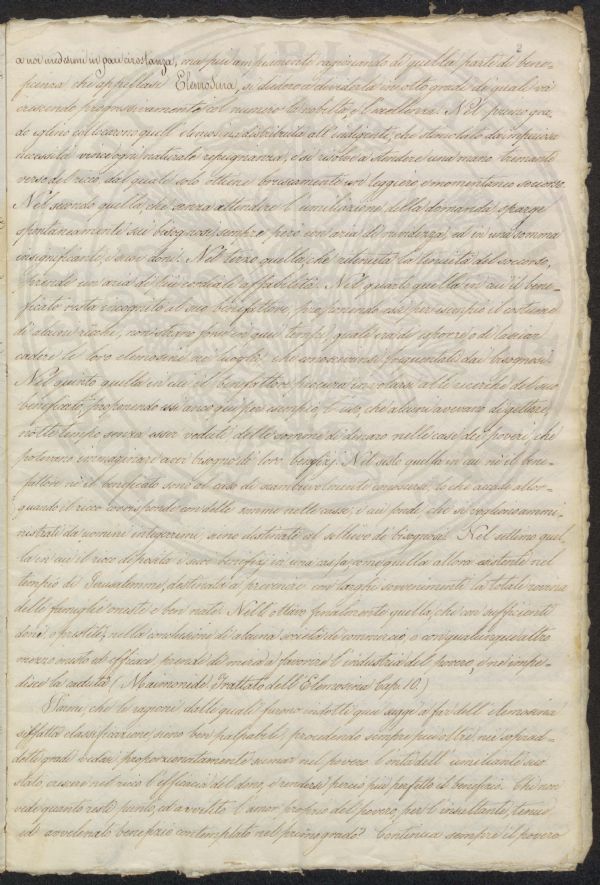 2
a noi medesimi in gran circostanza, ora più ampiamente ragionando di quella parte di bene-
ficenza che appellasi Elemosina, si diedero a dividerla in otto gradi de quali va
crescendo progressivamente col numero la nobiltà, e l'eccellenza. Nel primo gra-
do eglino collocarono quell'elemosina distribuita all'indigente, che stimolato da imperiosa
necessità vince ogni naturale repugnanza, e si risolve a stendere una mano tremante
verso del ricco, dal quale solo ottiene bruscamente un leggiero e momentaneo soccorso.
Nel secondo quella, che senza attendere l'umiliazione della domanda, sparge
spontaneamente sui bisognosi, sempre però con aria di ruvidezza, ed in una somma
insignificante, i suoi doni. Nel terzo quella, che ritenuta la tenuità del soccorso,
prende un'aria di più cordiale affabilità. Nel quarto quella in cui il bene-
ficato resta incognito al suo benefattore, proponendo essi per esempio il costume
di alcuni ricchi, non strano forse in quei tempi, quali era di esporre, o di lasciar
cadere le loro elemosine nei luoghi, che conoscevansi frequentati dai bisognosi.
Nel quinto quella in cui il benefattore procura involarsi alle ricerche del suo
beneficato, proponendo essi anco qui per esempio, l'uso, che alcuni avevano di gettare
nottetempo senza esser veduti delle somme di dinaro nelle case dei poveri, che
potevano immaginare aver bisogno di loro benefizj. Nel sesto quella in cui nè il bene-
fattore nè il beneficato sono al caso di scambievolmente conoscersi, lo che accade allor-
quando il ricco corrisponde con delle somme nelle casse, i cui fondi, che si vogliono ammi-
nistrati da uomini integerrimi, sieno destinati al sollievo de' bisognosi. Nel settimo quel-
la in cui il ricco deposita i suoi benefizj in una cassa, come quella allora esistente nel
tempio di Jerusalemme, destinata a prevenire con larghi sovvenimenti la totale rovina
delle famiglie oneste e ben nate. Nell'ottavo finalmente quella, che con sufficienti
doni, o prestiti, nella conclusione di alcuna società di commercio, o con qualunque altro
mezzo onesto ed efficace prende di mira a favorire l'industria del povero, e ne impe-
disce la caduta (Maimonide Trattato dell'Elemosina Cap. 10.)
Sicchè, che le ragioni dalle quali furono indotti quei saggi a far dell'elemosina
siffatta classificazione, sieno ben palpabili, procedendo sempre più oltre nei soprad-
detti gradi vedesi proporzionatamente scemar nel povero l'onta dell'umiliante suo
stato, crescere nel ricco l'efficacia del dono, e rendersi perciò più perfetto il benefizio. Chi non
vede quanto resti punto, ed avvilito l'amor proprio del povero, per l'insultante, tenue
ed avvelenato benefizio contemplato nel primo grado? Continua sempre il povero